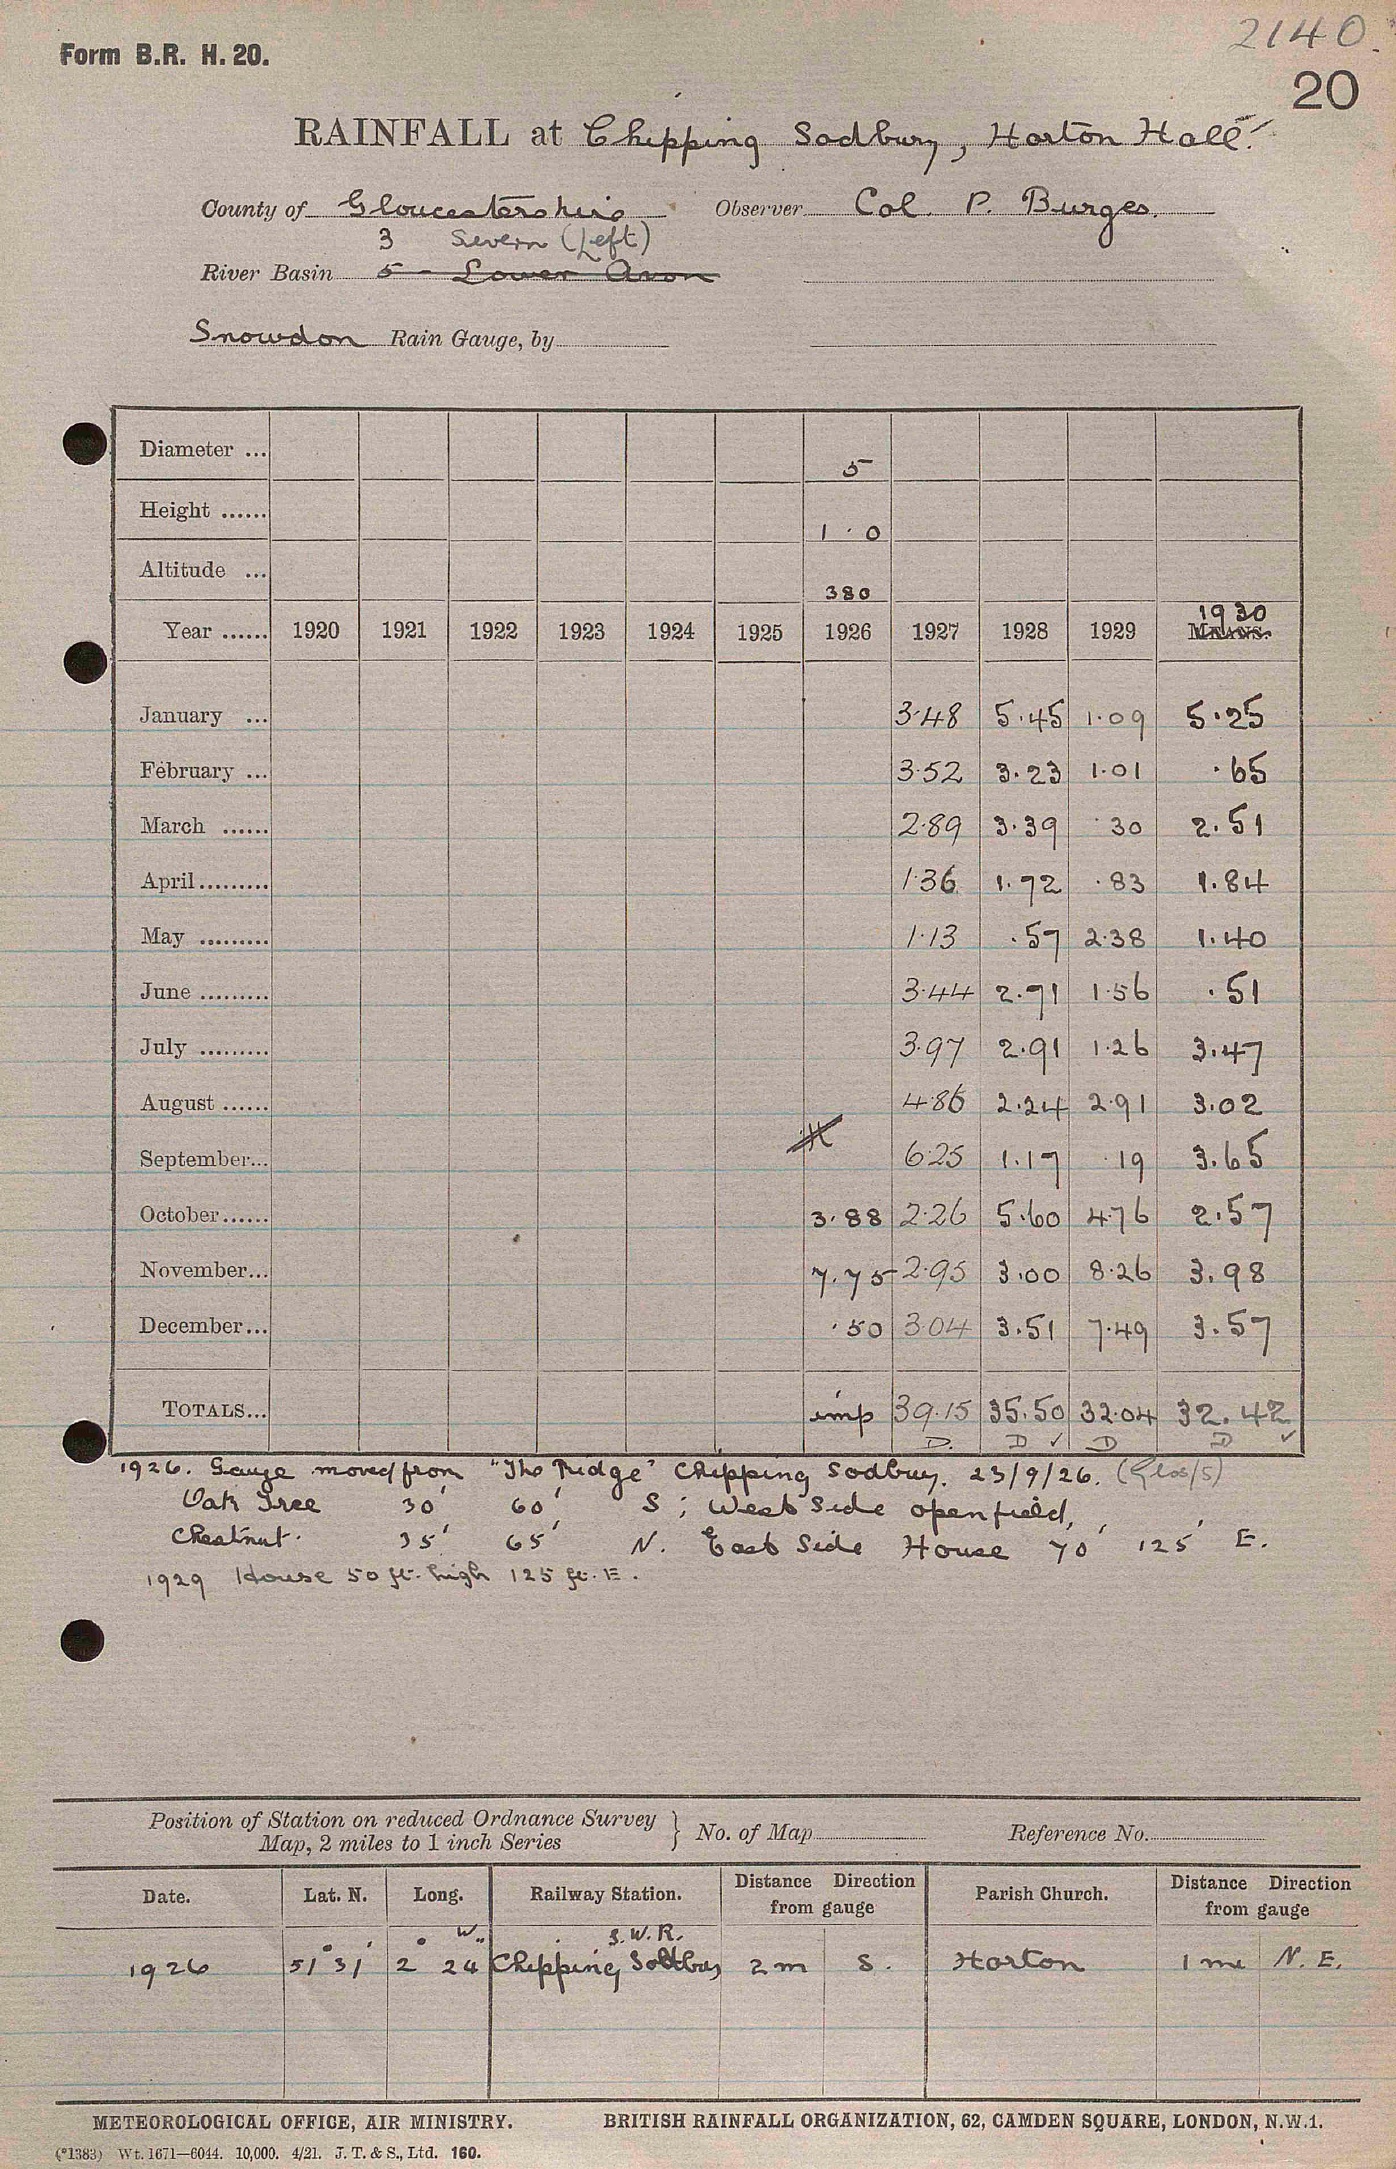 2140
Form B.R. H. 20.
20
RAINFALL at Chipping Sodbury, Horton Hall.
County of Gloucestershire Observer Col. P. Burges.
3 Severn (Left)
River Basin 5 - Lower Avon
Snowdon Rain Gauge, by
Diameter ... 5
Height ...... 1 . 0
Altitude ... 380
1930
Year ...... 1920 1921 1922 1923 1924 1925 1926 1927 1928 1929 MEANS.
January ... 3.48 5.45 1.09 5.25
February ... 3.52 3.23 1.01 .65
March ...... 2.89 3.39 .30 2.51
April......... 1.36 1.72 .83 1.84
May ......... 1.13 .57 2.38 1.40
June ......... 3.44 2.71 1.56 .51
July ......... 3.97 2.91 1.26 3.47
August ...... 4.86 2.24 2.91 3.02
September... 6.25 1.17 .19 3.65
October...... 3.88 2.26 5.60 4.76 2.57
November... 7.75 2.95 3.00 8.26 3.98
December... .50 3.04 3.51 7.49 3.57
TOTALS... imp 39.15 35.50 32.04 32.42
D. D ✓ D D ✓
1926. Gauge moved from "The Ridge" Chipping Sodbury. 23/9/26. (Glos/5)
Oak Tree 30' 60' S ; West Side open field,
Chestnut. 35' 65' N. East Side House 70' 125' E.
1929 House 50 ft. high 125 ft. E.
Position of Station on reduced Ordnance Survey
Map, 2 miles to 1 inch Series } No. of Map Reference No.
Date. Lat. N. Long. Railway Station. Distance Direction from gauge Parish Church. Distance Direction from gauge
W. G.W.R.
1926 51° 31' 2° 24" Chipping Sodbury 2 m S. Horton 1 me N. E.
METEOROLOGICAL OFFICE, AIR MINISTRY. BRITISH RAINFALL ORGANIZATION, 62, CAMDEN SQUARE, LONDON, N.W.1.
(*1383) Wt. 1671—6044. 10,000. 4/21. J. T. & S., Ltd. 160.